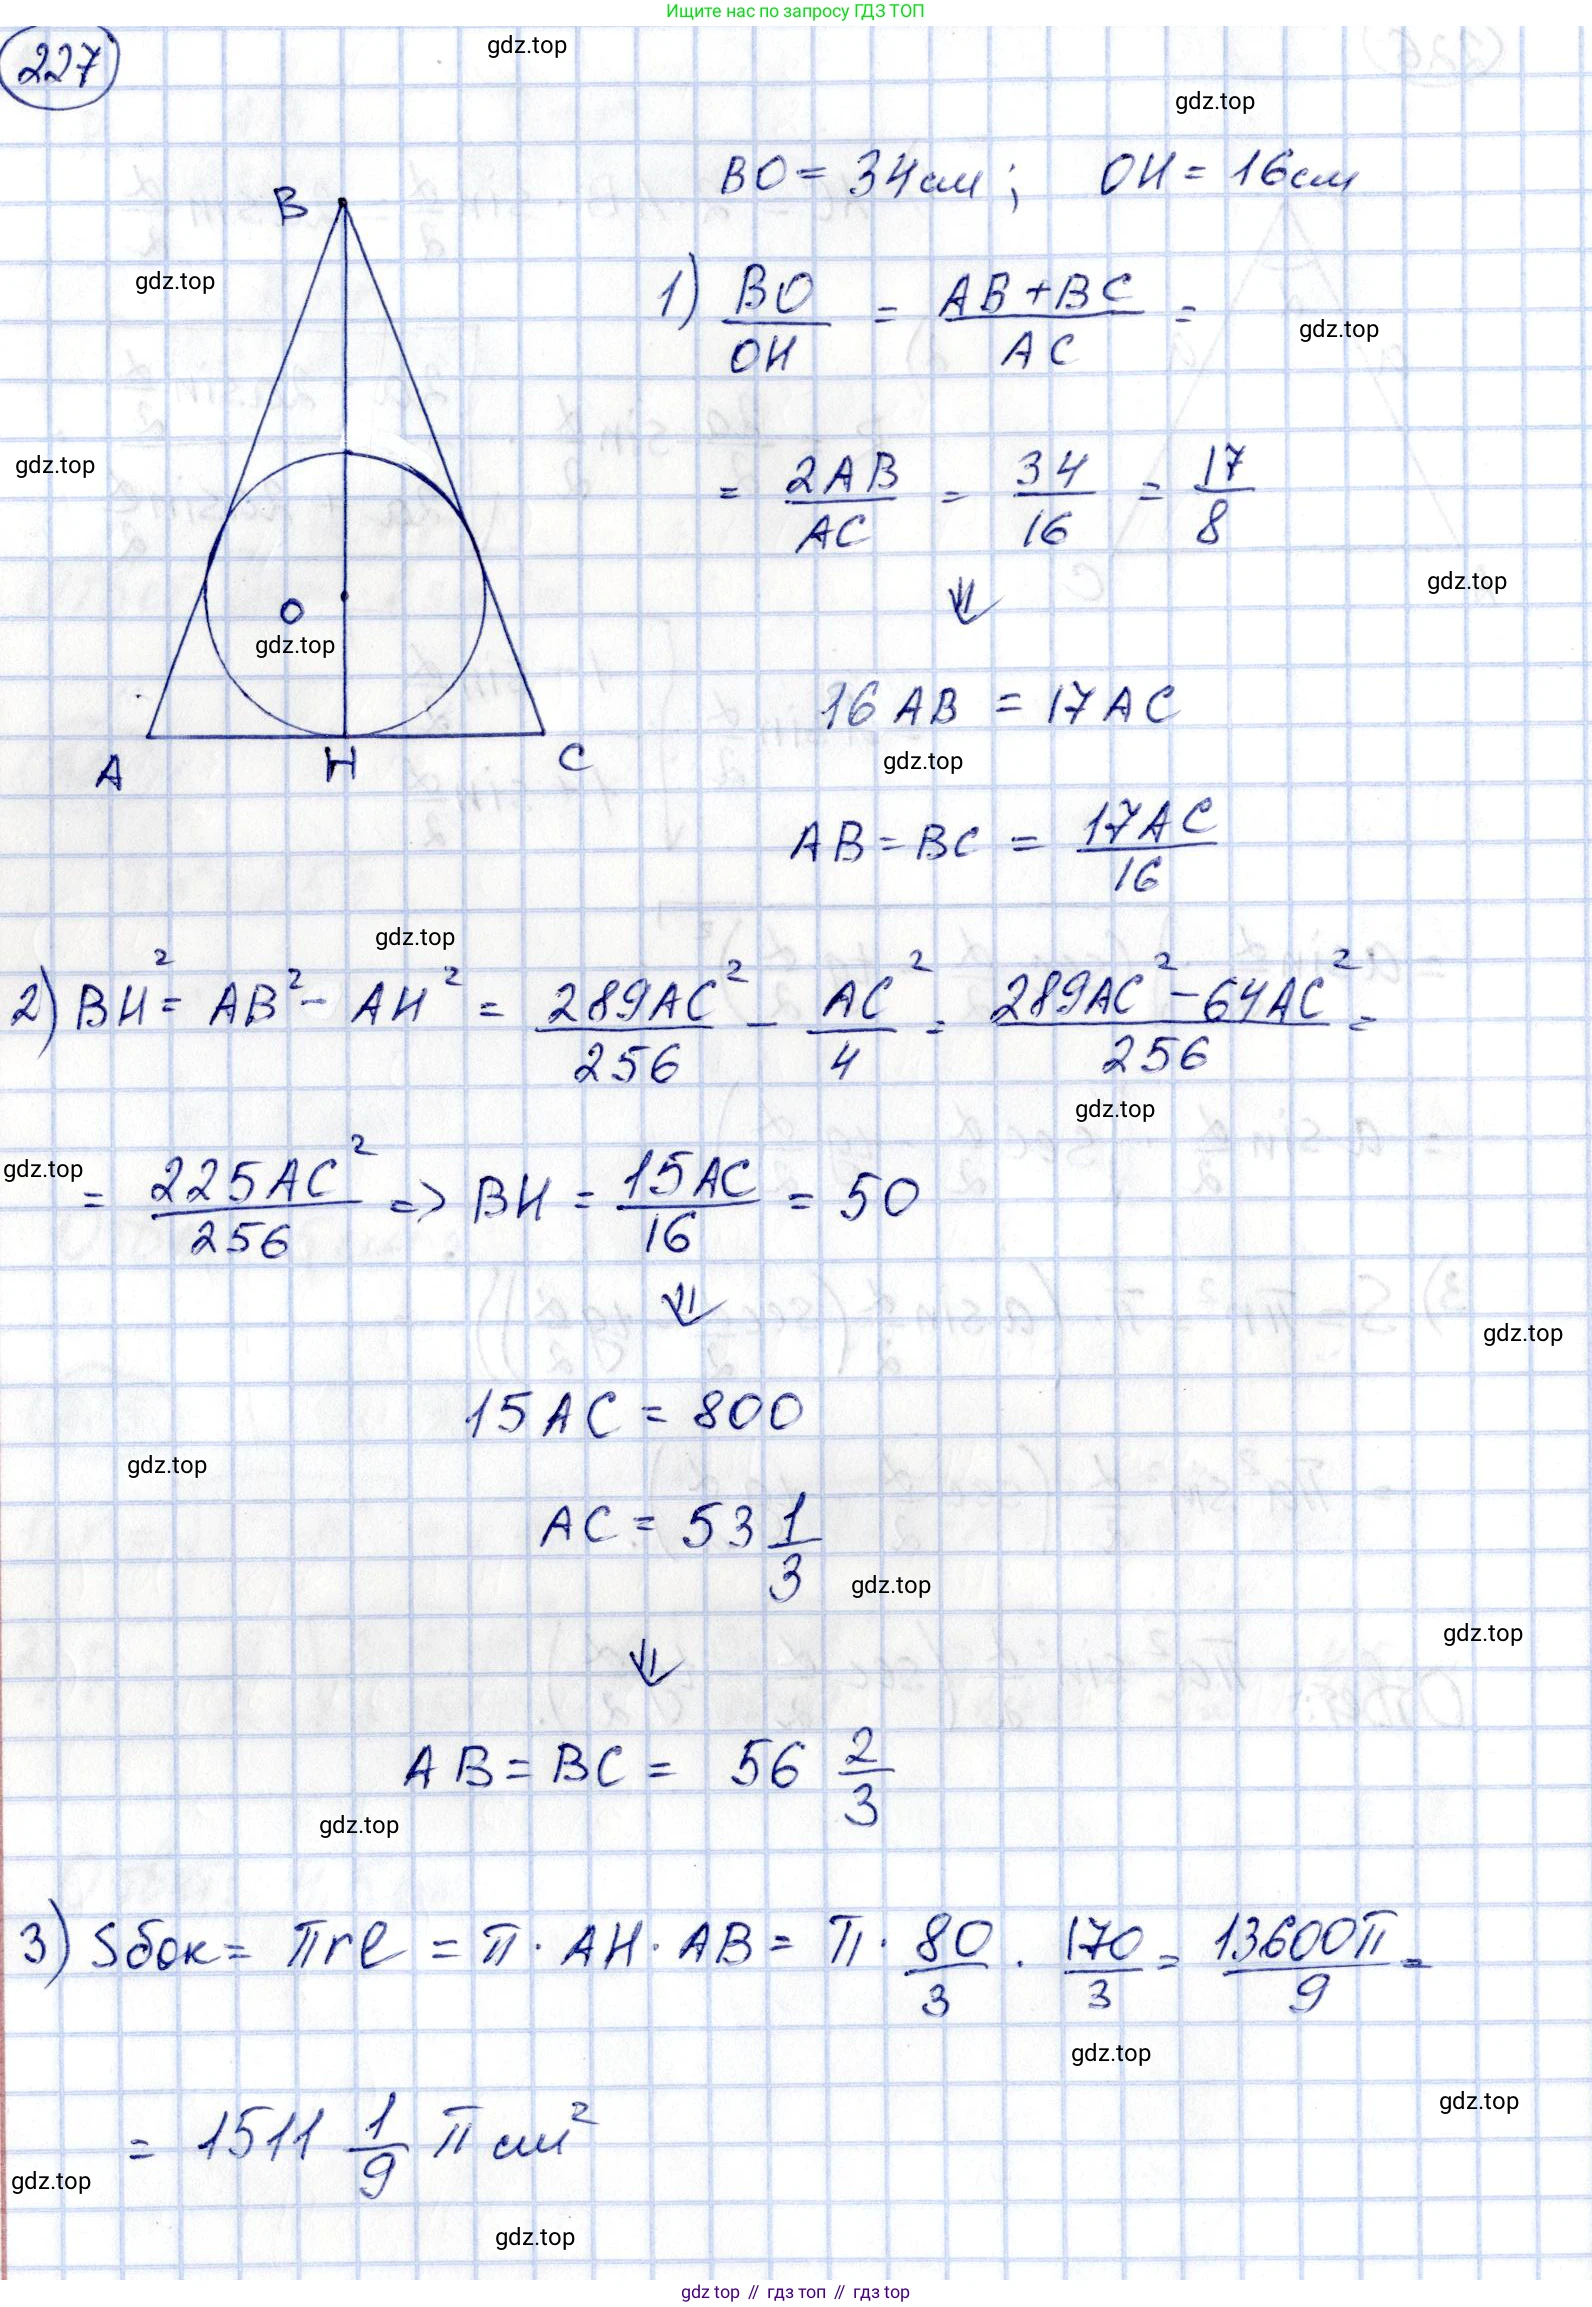 Ищите нас по запросу ГДЗ ТОП
227
gdz.top
gdz.top
BO = 34см; OH = 16см
B
gdz.top
1) BO/OH = (AB+BC)/AC =
gdz.top
gdz.top
= 2AB/AC = 34/16 = 17/8
gdz.top
O
gdz.top
⇓
16AB = 17AC
A H C
gdz.top
AB = BC = 17AC/16
gdz.top
2) BH² = AB² - AH² = 289AC²/256 - AC²/4 = (289AC² - 64AC²)/256 =
gdz.top
gdz.top
= 225AC²/256 => BH = 15AC/16 = 50
⇓
gdz.top
15AC = 800
gdz.top
AC = 53 1/3
gdz.top
gdz.top
⇓
AB = BC = 56 2/3
gdz.top
3) Sбок = πrl = π · AH · AB = π · 80/3 · 170/3 = 13600π/9 =
gdz.top
gdz.top
= 1511 1/9 π см²
gdz.top
gdz.top
gdz top // гдз топ // гдз top